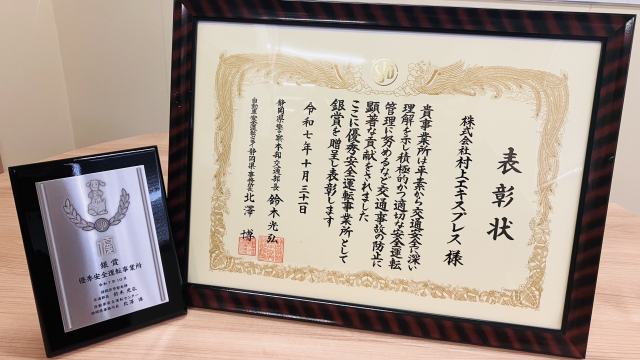 表彰状
株式会社村上エキスプレス 様
貴事業所は平素から交通安全に深い
理解を示し積極的かつ適切な安全運転
管理に努めるなど交通事故の防止に
顕著な貢献をされました
ここに優秀安全運転事業所として
銀賞を贈呈し表彰します
令和七年十月三十一日
静岡県警察本部交通部長 鈴木光弘
自動車安全運転センター静岡県事務所長 北澤 博
SD
銀賞
優秀安全運転事業所